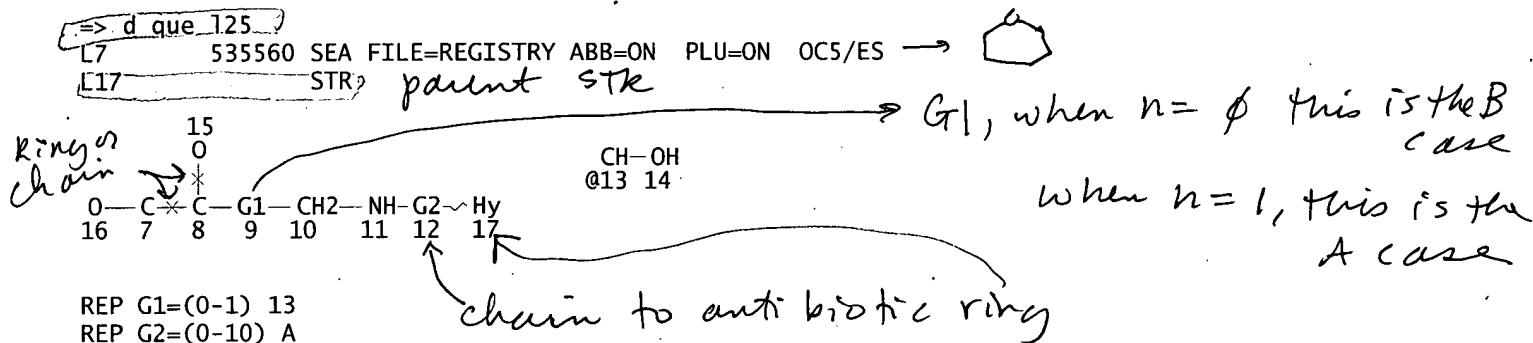 => d que l25
L7 535560 SEA FILE=REGISTRY ABB=ON PLU=ON OC5/ES →
L17 STR parent STR
G1, when n= ϕ this is the B case
when n = 1, this is the A case
Ring or chain
15
O
CH—OH
@13 14
O—C—C—G1—CH2—NH—G2~Hy
16 7 8 9 10 11 12 17
REP G1=(0-1) 13
REP G2=(0-10) A
chain to antibiotic ring